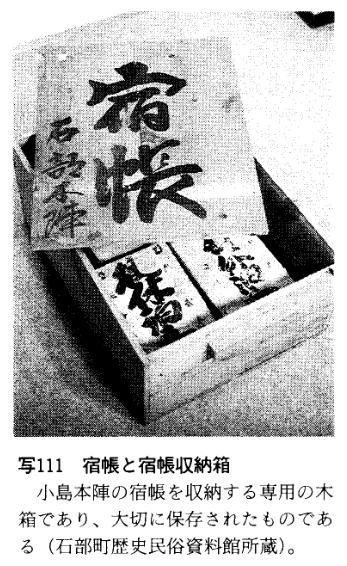 宿帳
石部本陣
写111　宿帳と宿帳収納箱
小島本陣の宿帳を収納する専用の木
箱であり、大切に保存されたものであ
る（石部町歴史民俗資料館所蔵）。